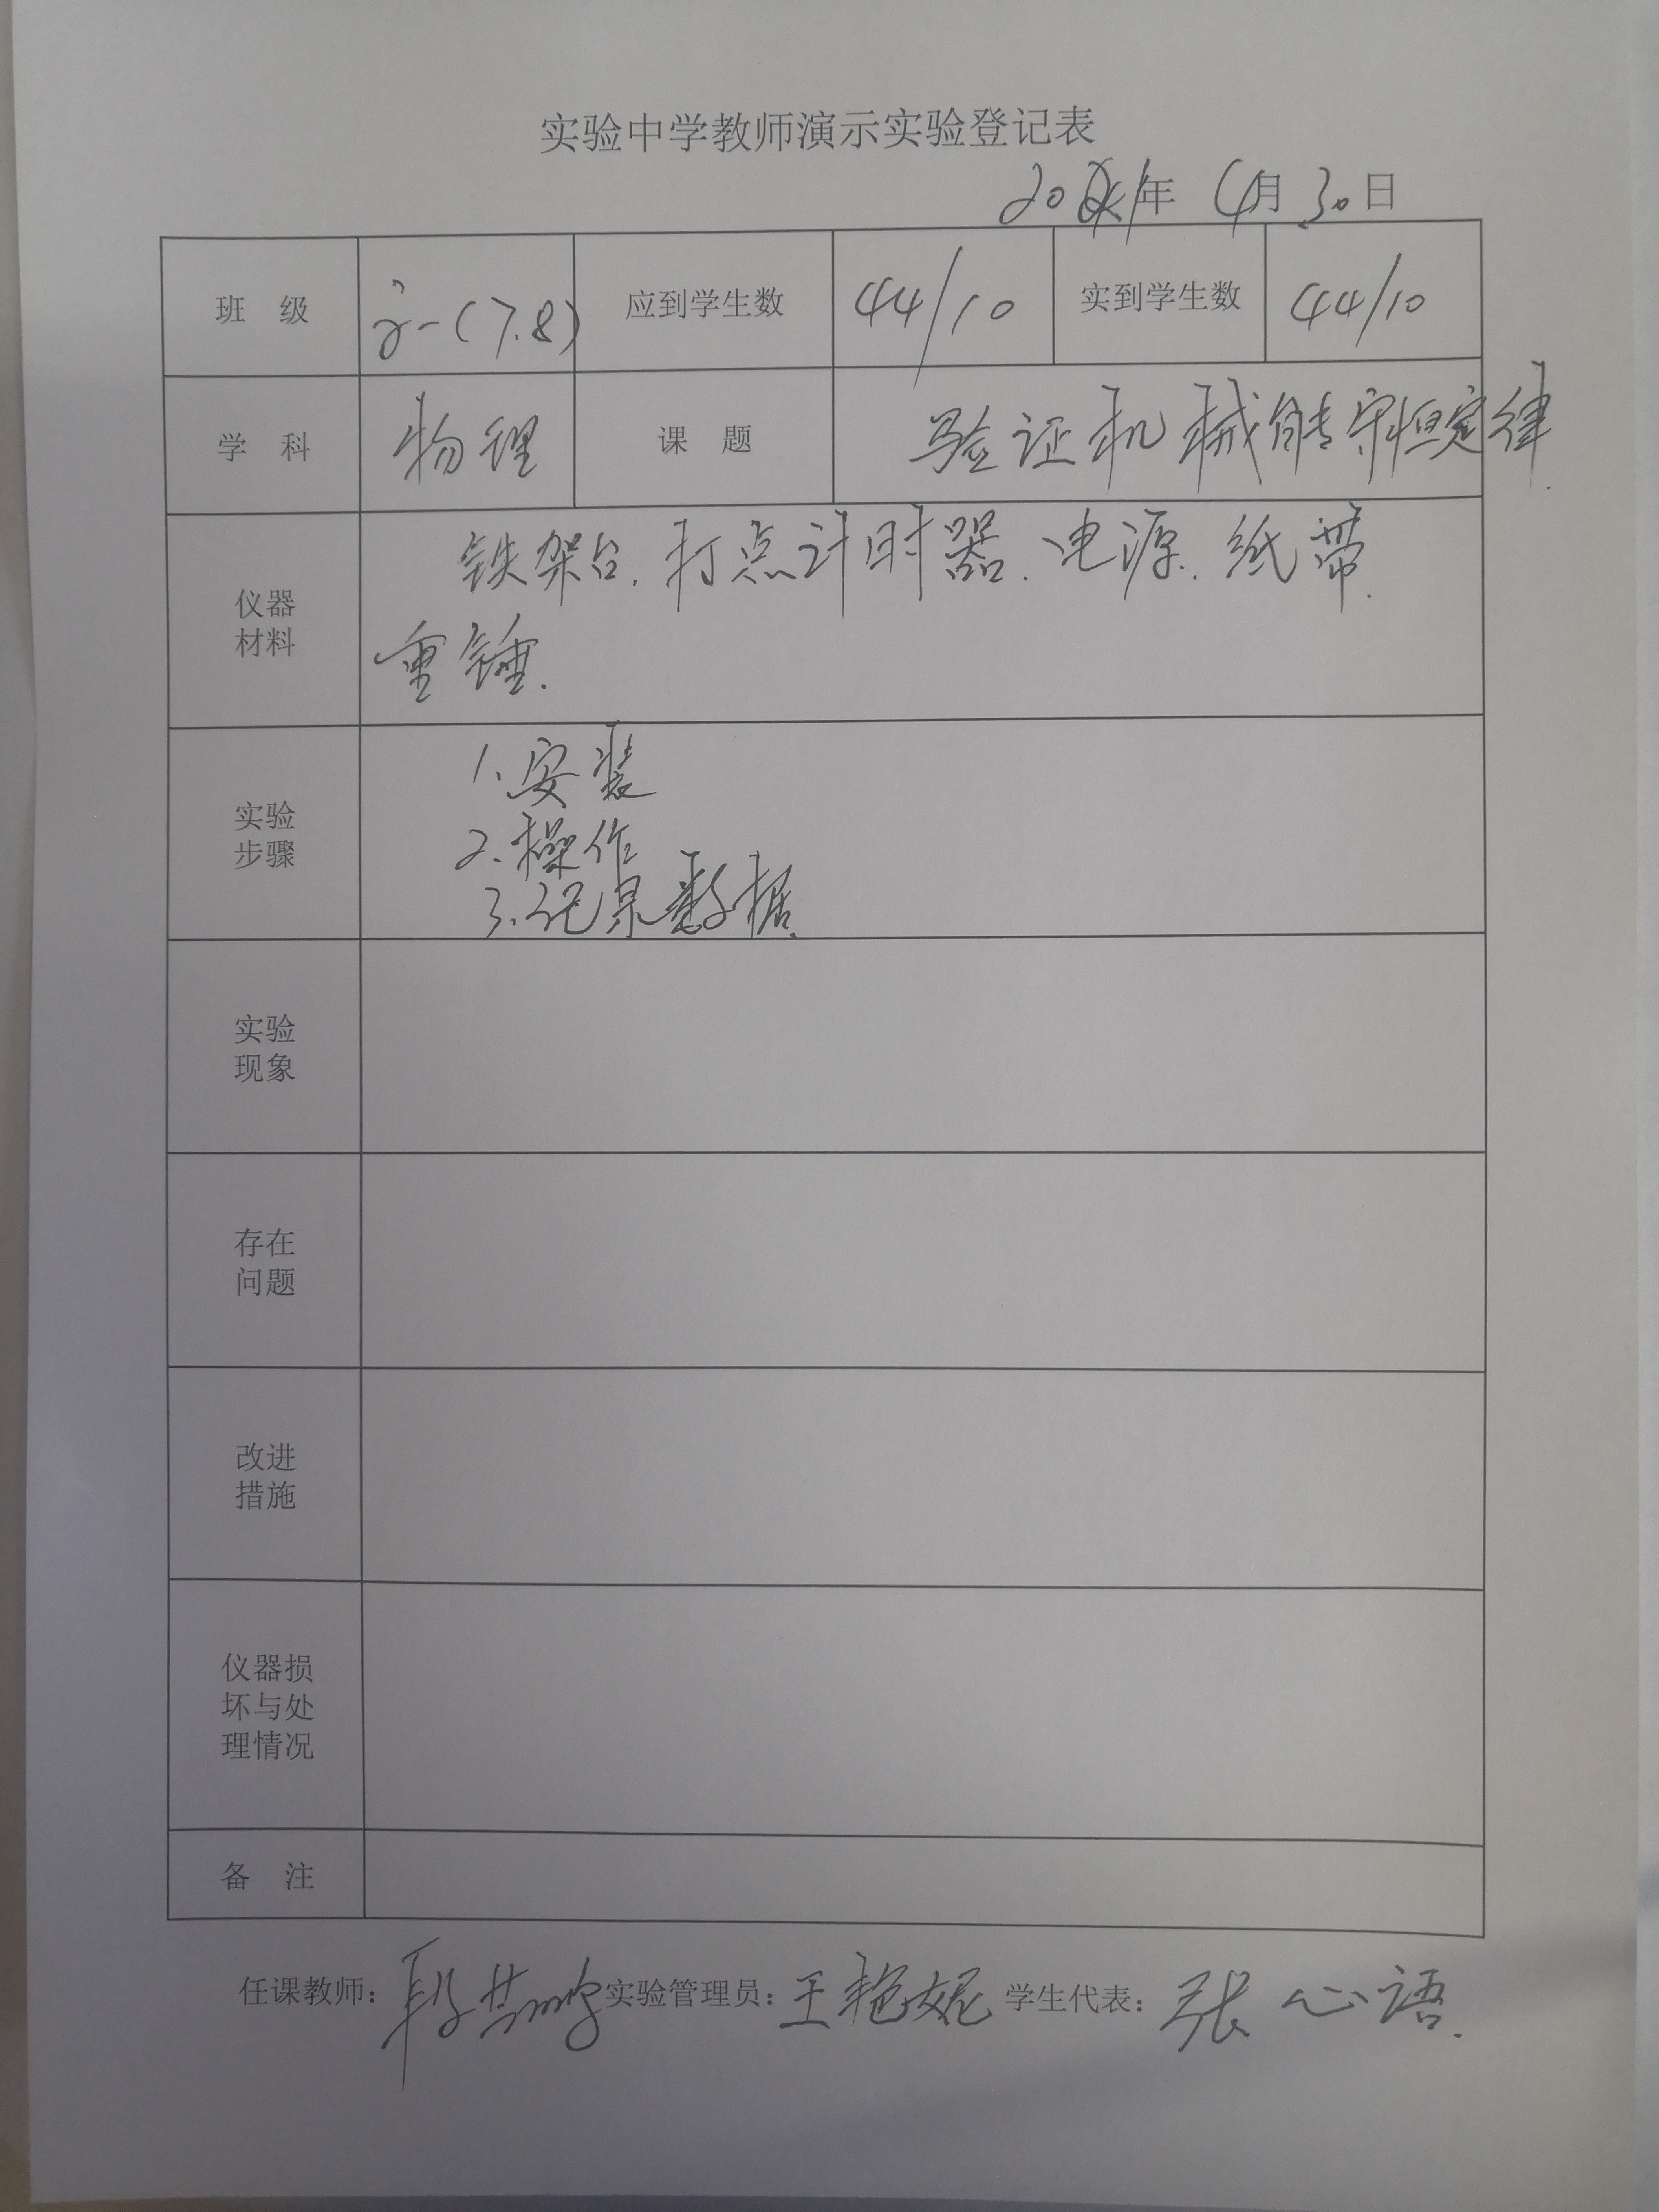 实验中学教师演示实验登记表
年 4月30日
班 级 高一(7.8) 应到学生数 44/10 实到学生数 44/10
学 科 物理 课 题 验证机械能守恒定律.
仪器
材料
铁架台.打点计时器.电源.纸带.
重锤.
实验
步骤
1.安装
2.操作
3.记录数据.
实验
现象
存在
问题
改进
措施
仪器损
坏与处
理情况
备 注
任课教师: 段 实验管理员:王艳妮 学生代表:张心语.